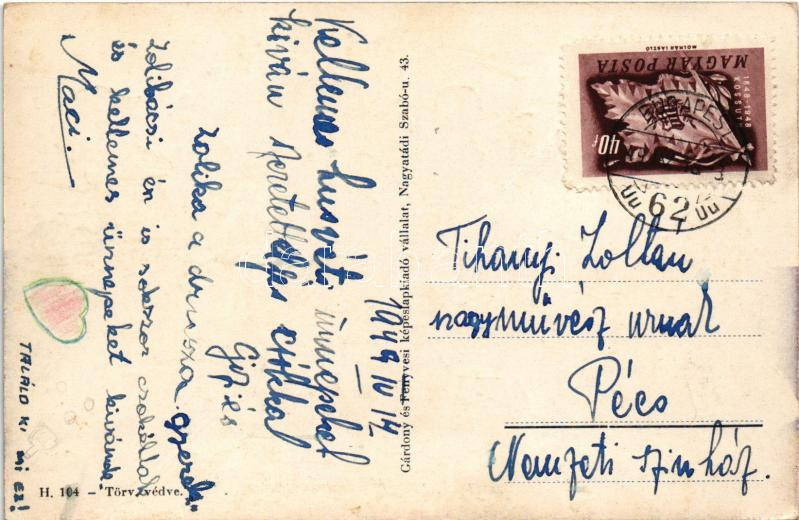 1949 IV 14
Kellemes húsvéti ünnepeket
kíván szeretettel és csókkal
Gizi és
Zolika a drusza gyerek.
Zolibácsi én is sokszor csókollak
és kellemes ünnepeket kívánok.
Maci.
TALÁLD KI
MI EZ!
H. 104 – Törv. védve.
Gárdony és Fenyvesi képeslapkiadó vállalat, Nagyatádi Szabó-u. 43.
MAGYAR POSTA
1848-1948
KOSSUTH
40f
MOLNÁR LÁSZLÓ
BUDAPEST
62
Tihanyi Zoltán
nagyművész urnak
Pécs
Nemzeti szinház.